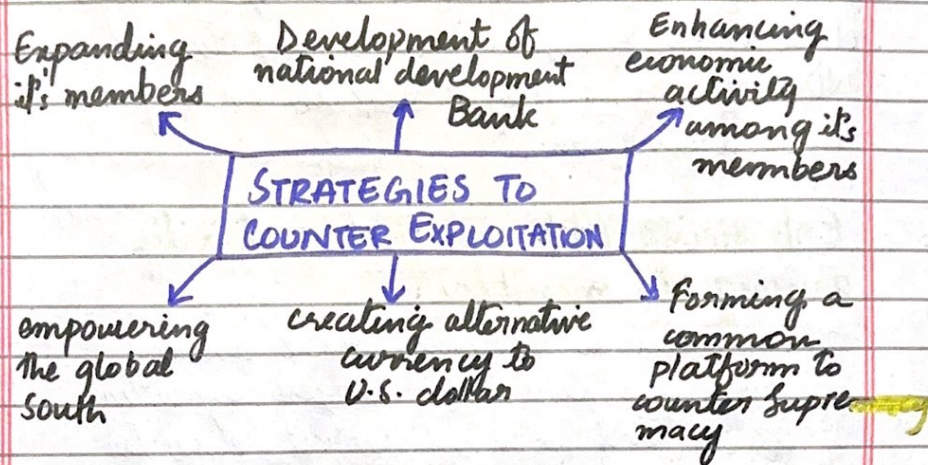 Expanding
it's members
Development of
national development
Bank
Enhancing
economic
activity
among it's
members
STRATEGIES TO
COUNTER EXPLOITATION
empowering
the global
South
creating alternative
currency to
U.S. dollar
forming a
common
platform to
counter supre-
macy